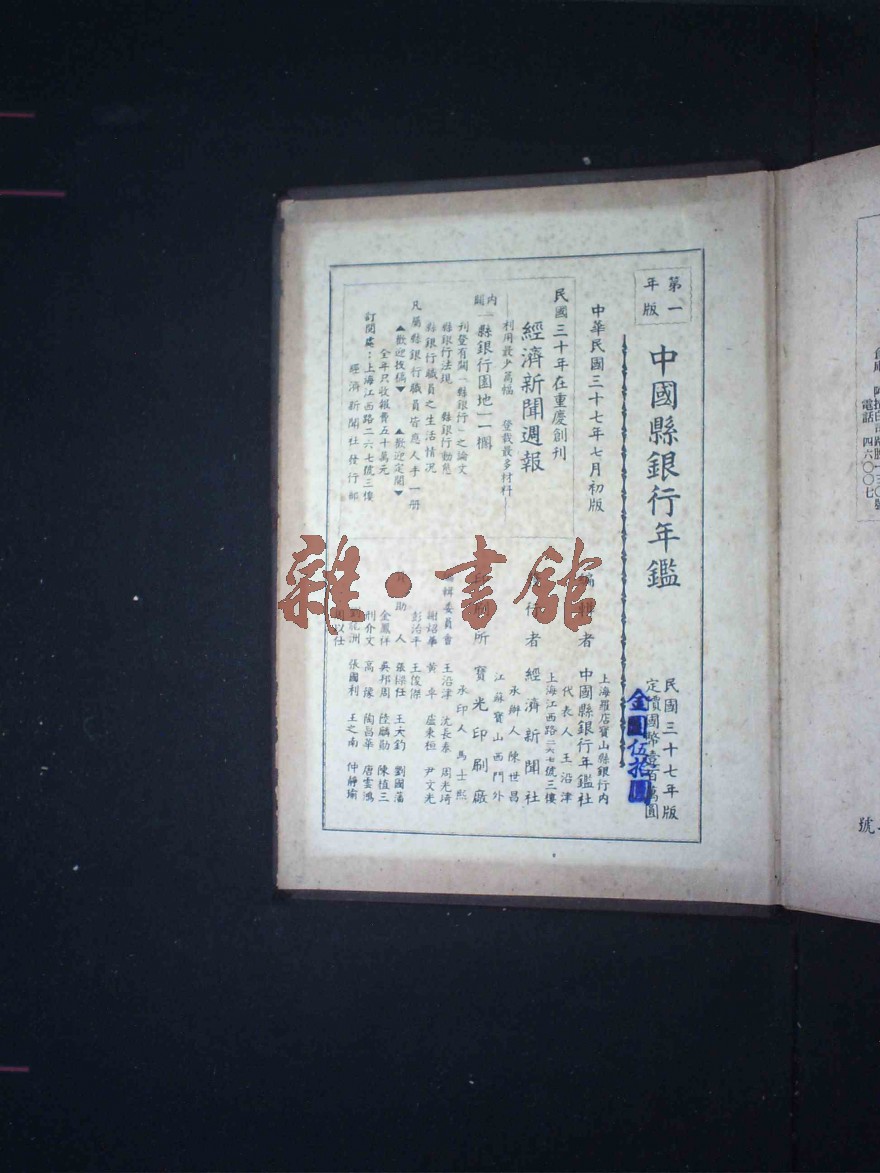 第一
年版
中國縣銀行年鑑
民國三十七年版
定價國幣壹百萬圓
金圓伍拾圓
中華民國三十七年七月初版
編輯者 中國縣銀行年鑑社
上海羅店寶山縣銀行內
代表人 王沿津
發行者 經濟新聞社
上海江西路二六七號三樓
承辦人 陳世昌
印刷所 寶光印刷廠
江蘇寶山西門外
承印人 馬士熙
編輯委員會
王沿津 沈長泰 周光琦
謝紹華 黃卓 盧東桓 尹文光
彭治平 王俊傑
助人 張樑任 王大鈞 劉國藩
金鳳伴 吳邦周 陸麟勛 陳植三
荊介文 高 陶昌華 唐雲鴻
洲 張國利 王之南 仲靜瑜
以仕
民國三十年在重慶創刊
經濟新聞週報
——利用最少篇幅 登載最多材料——
內闢「縣銀行園地」一欄
刊登有關「縣銀行」之論文
縣銀行法規 縣銀行動態
縣銀行職員之生活情況
凡屬縣銀行職員皆應人手一册
▲歡迎投稿▼ ▲歡迎定閱▼
全年只收報費五十萬元
訂閱處：上海江西路二六七號三樓
經濟新聞社發行部
雜·書館
電話 四六〇〇七
號